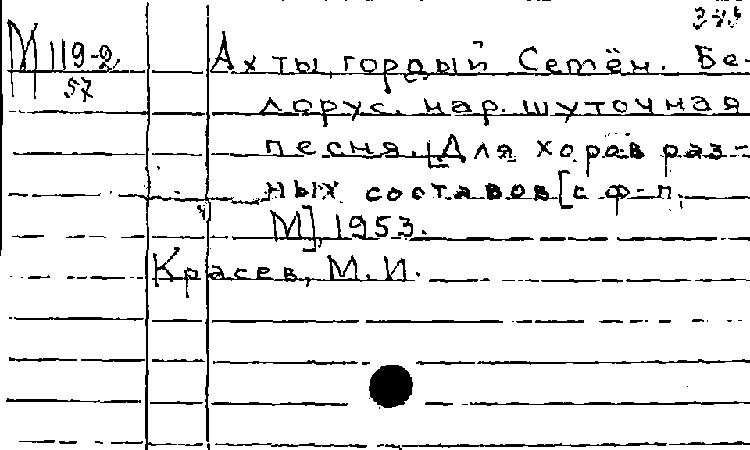 М 119-2
57
Ах ты, гордый Семён. Бе-
лорус. нар. шуточная
песня. [Для хоров раз-
ных составов [с ф-п.
М], 1953.
Красев, М.И.